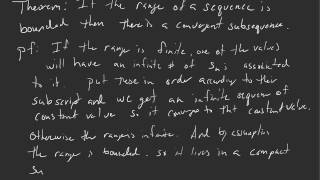 Theorem: If the range of a sequence is
bounded then there is a convergent subsequence.
Pf: If the range is finite, one of the values
will have an infinite # of Sn's associated
to it. Put these in order according to their
subscript and we get an infinite sequence of
constant value so it converges to that constant value.
Otherwise the range is infinite. And by assumption
the range is bounded. so it lives in a compact